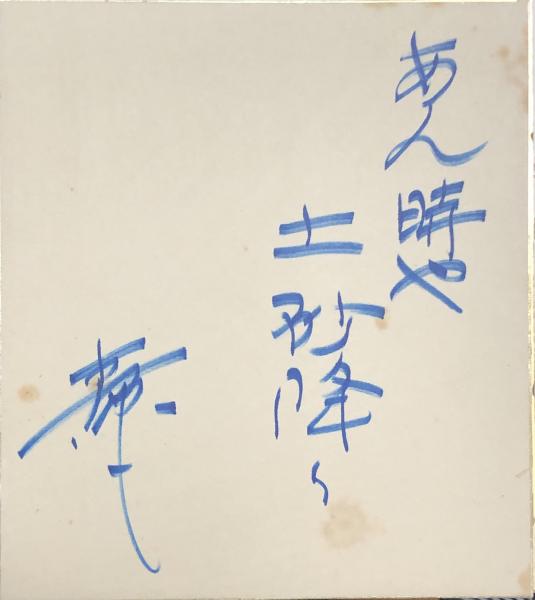 あん時や
土砂降り